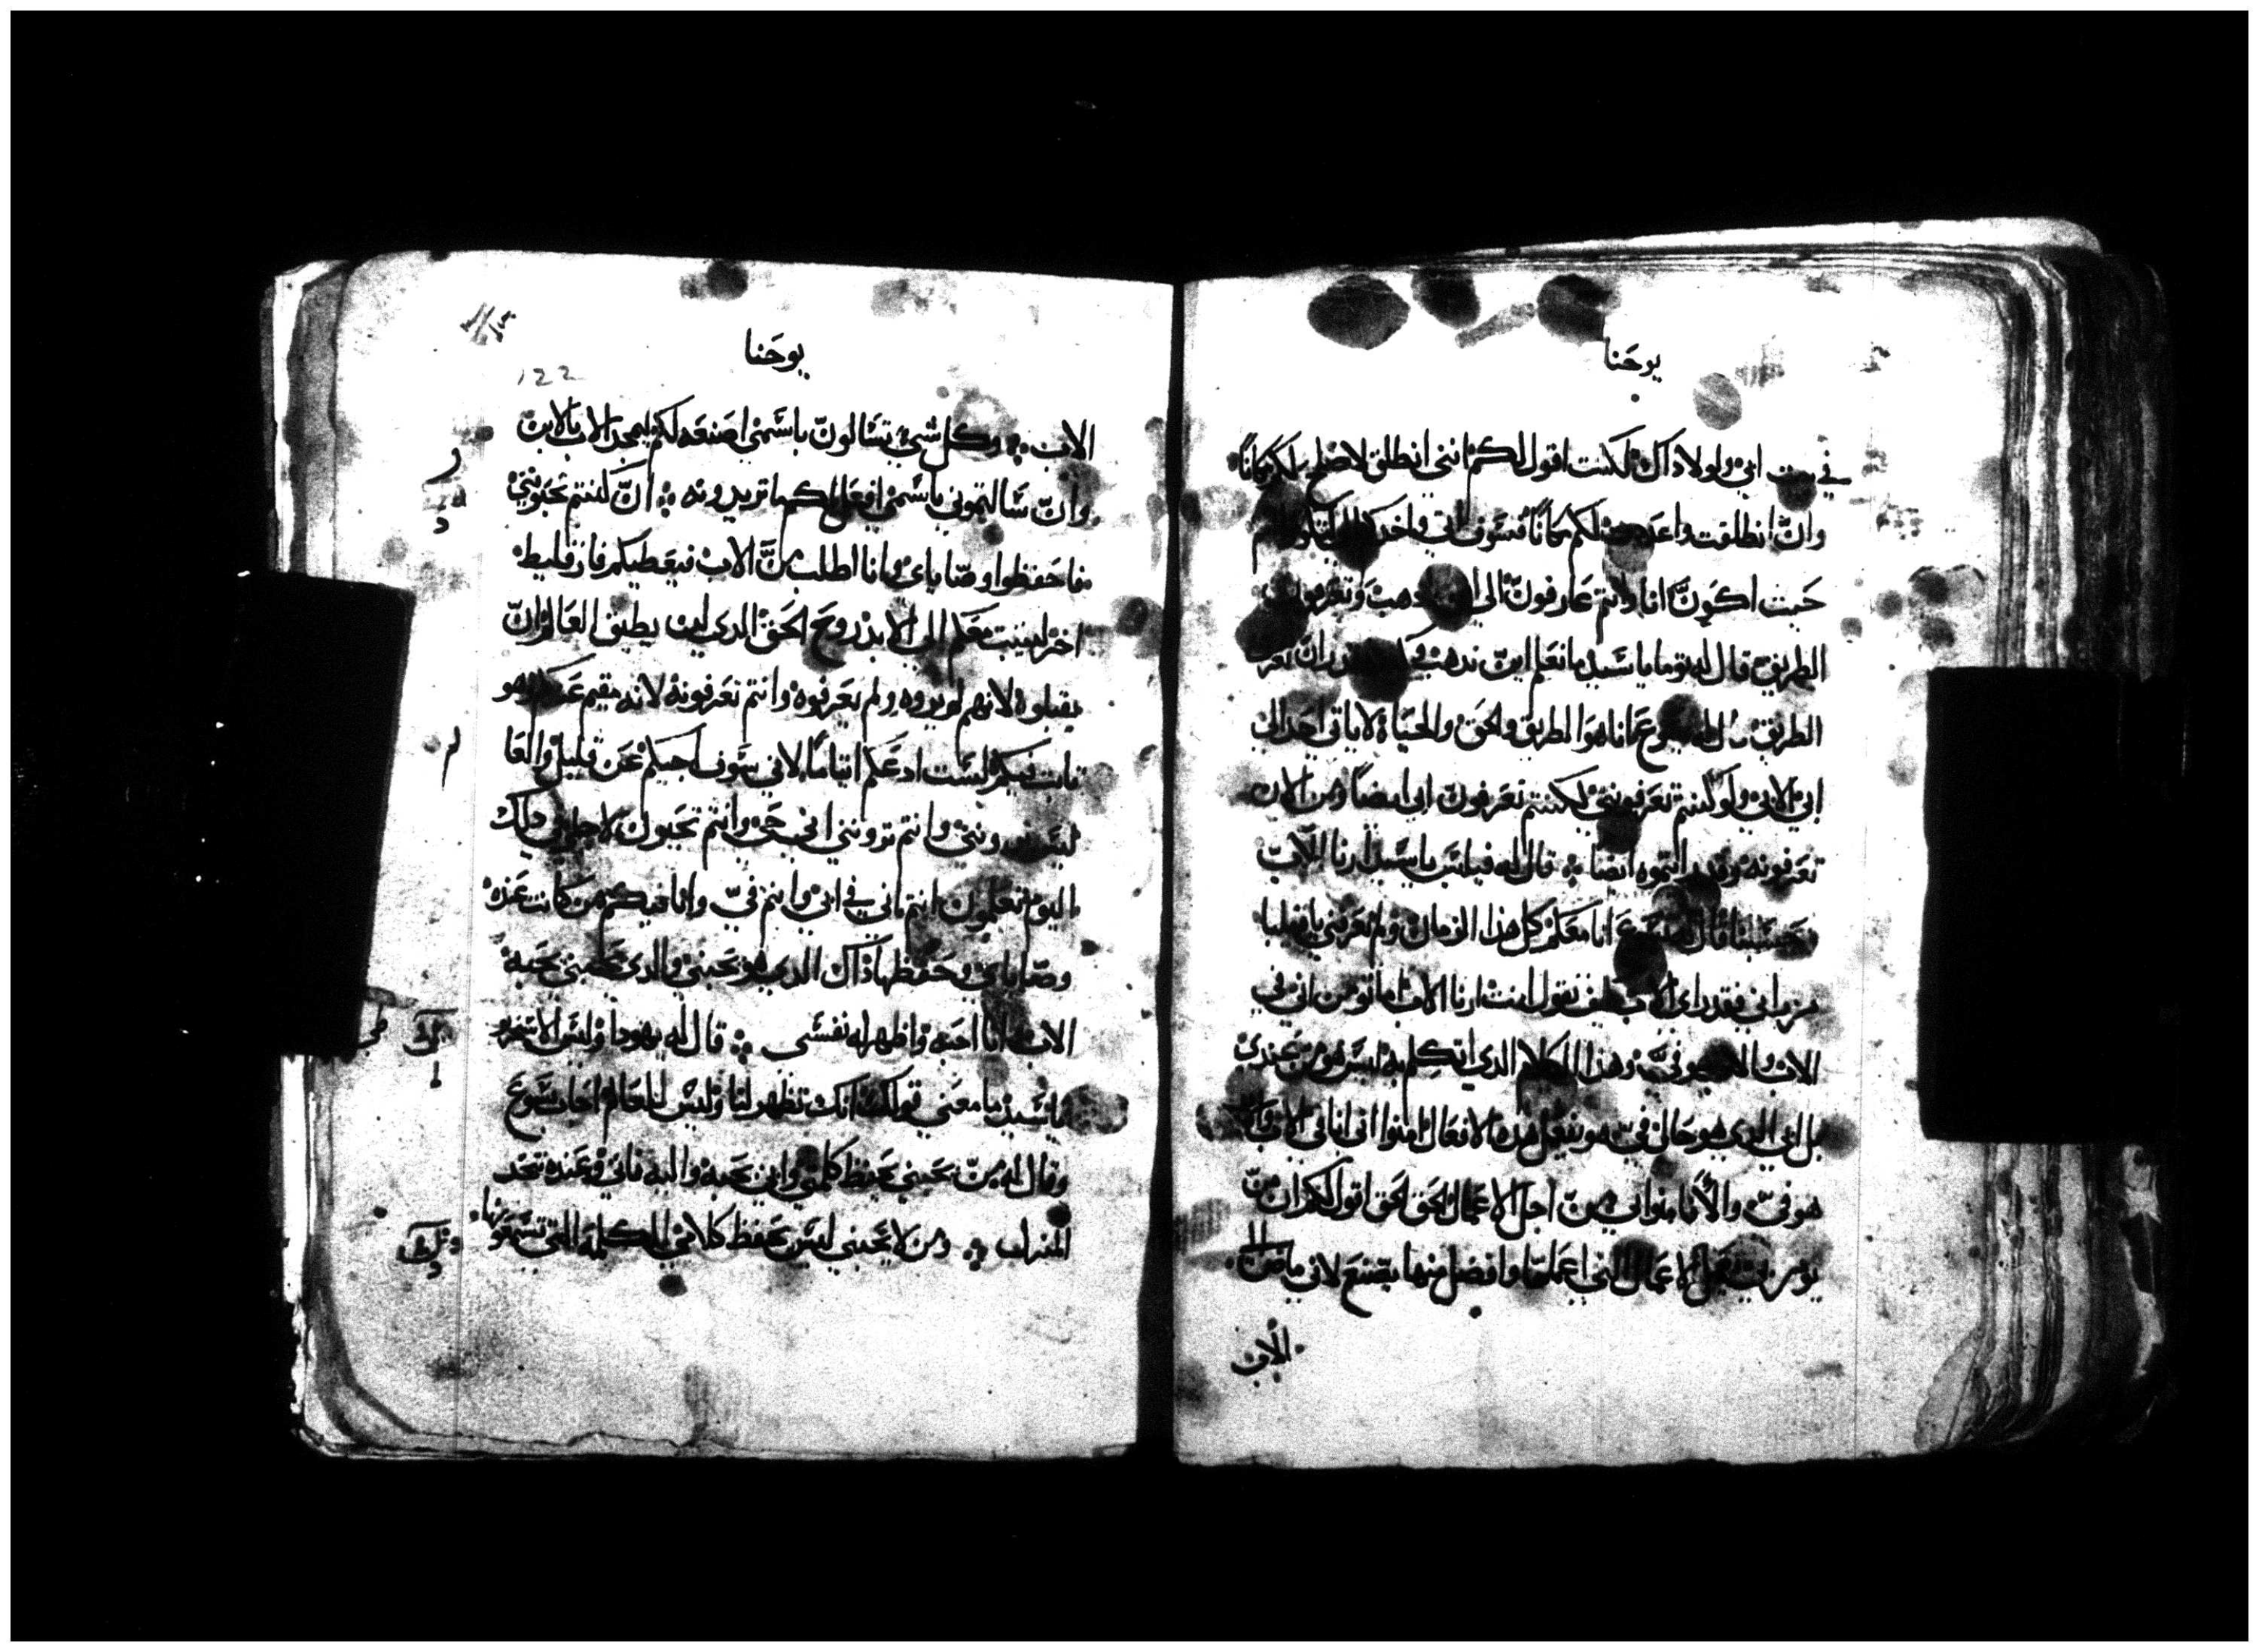 يوحنا
في بيت ابي ولولا ذاك لكنت اقول لكم انني انطلق لاصلح لكم مكانا
وان انطلقت واعددت لكم مكانا فسوف اتي واخدكم الي لتكونوا انتم
حيت اكون انا وانتم عارفون الي اين ادهب وتعرفون
الطريق قال له توما يا سيد ما نعلم اين تدهب وكيف نقدر ان نعرف
الطريق قال له يسوع انا هو الطريق والحق والحياة لا ياتي احد الي
ابي الا بي ولو كنتم تعرفونني لكنتم تعرفون ابي ايضا ومن الان
تعرفونه وقد رايتموه ايضا قال له فيلبس يا سيد ارنا الاب
وحسبنا قال له يسوع انا معكم كل هدا الزمان ولم تعرفني يا فيلبا
من راني فقد راي الاب كيف تقول انت ارنا الاب اما تومن اني في
الاب والاب هو في وهذا الكلام الدي اتكلم به ليس هو من عندي
بل ابي الدي هو حال في هو يفعل هده الافعال امنوا اني انا في الاب والاب
هو في والا فامنوا بي من اجل الاعمال الحق الحق اقول لكم ان من
يومن بي يعمل الاعمال التي اعملها وافضل منها يصنع لاني ماض الي
الاب
يوحنا
122
الاب وكل شي تسالون باسمي اصنعه لكم ليمجد الاب بالابن
وان سالتموني باسمي افعل لكم ما تريدونه ان كنتم تحبونني
فاحفظوا وصاياي وانا اطلب من الاب فيعطيكم فارقليط
اخر ليثبت معكم الي الابد روح الحق الدي لن يطيق العالم ان
يقبلوه لانهم لم يروه ولم يعرفوه وانتم تعرفونه لانه مقيم عندكم وهو
ثابت فيكم لست ادعكم ايتاما لاني سوف اجيكم عن قليل والعا
ليس يرونني وانتم ترونني اني حي وانتم تحيون لاجلي في دلك
اليوم تعلمون انتم اني في ابي وانتم في وانا فيكم من كانت عنده
وصاياي وحفظها ذاك الدي هو يحبني والدي يحبني يحبه
الاب وانا احبه واظهر له نفسي قال له يهودا وليس الاسخريو
يا سيد ما معني قولك انك تظهر لنا وليس للعالم اجاب يسوع
وقال له من يحبني يحفظ كلمتي وابي يحبه واليه ناتي وعنده نتخد
المنزل ومن لا يحبني ليس يحفظ كلامي الكلمة التي تسمعونها